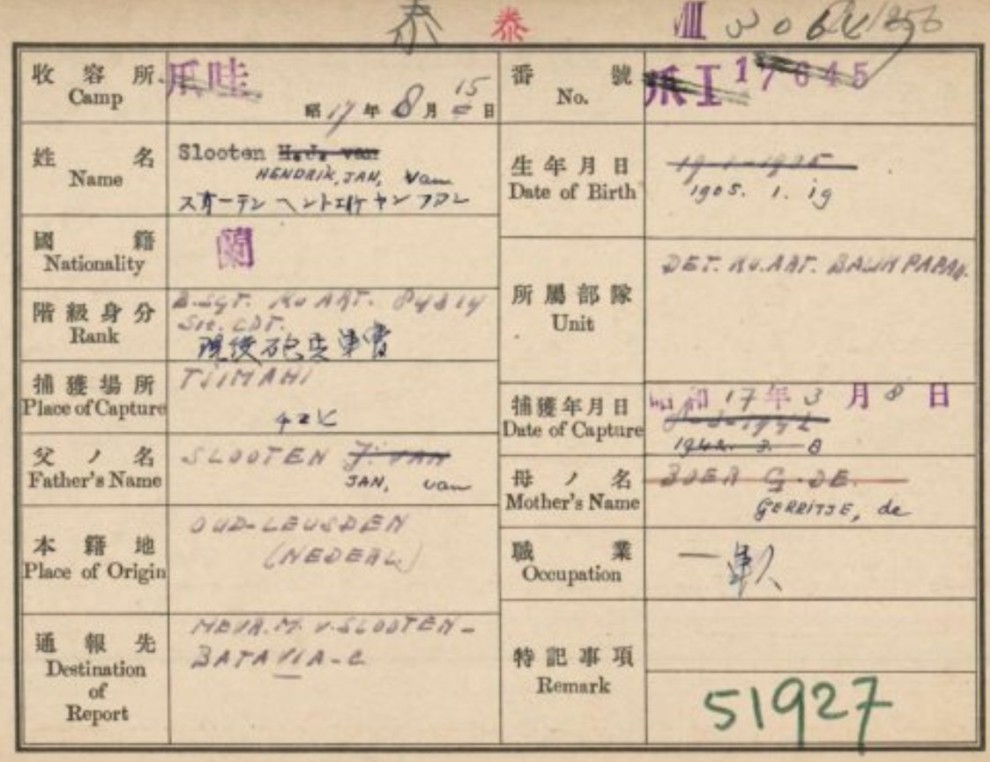 泰 泰 VIII
收容所
Camp
爪哇
昭17年8月15日
番號
No.
爪I 17645
姓名
Name
Slooten H.J. van
HENDRIK, JAN, van
生年月日
Date of Birth
19-1-1905
1905. 1. 19
國籍
Nationality
蘭
階級身分
Rank
B.SGT. KU ART.
現役砲兵軍曹
所屬部隊
Unit
DET. KU.ART. BALIKPAPAN.
捕獲場所
Place of Capture
TJIMAHI
チマヒ
捕獲年月日
Date of Capture
昭和17年3月8日
8-3-1942
1942. 3. 8
父ノ名
Father's Name
SLOOTEN J. VAN
JAN, van
母ノ名
Mother's Name
BOER G. DE.
GERRITJE, de
本籍地
Place of Origin
OUD-LEUSDEN
(NEDERL.)
職業
Occupation
通報先
Destination
of
Report
MEVR. M. V. SLOOTEN-
BATAVIA-C
特記事項
Remark
51927